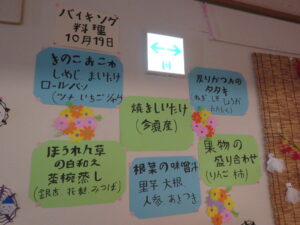 バイキング
料理
10月19日
きのこおこわ
しめじ まいたけ
ロールパン
(ツナ いちごジャム)
焼きしいたけ
(今庄産)
戻りカツオの
タタキ
ねぎ しょうが
にんにく
ほうれん草
の白和え
茶碗蒸し
(銀杏 花麩 みつば)
根菜の味噌汁
里芋 大根
人参 あさつき
果物の
盛り合わせ
(りんご 柿)